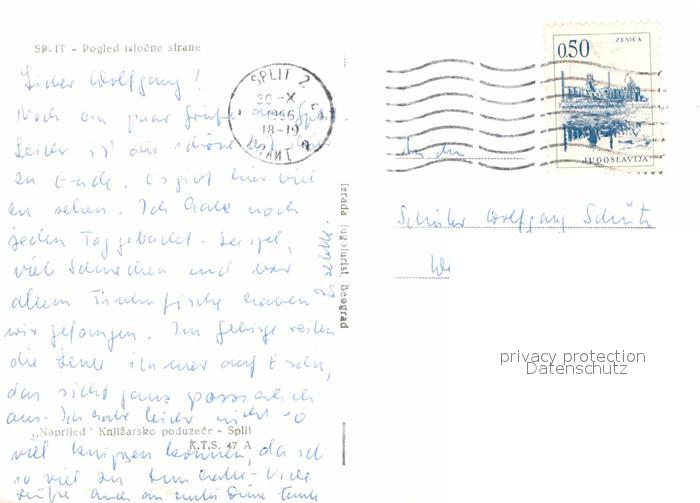 SPLIT - Pogled istočne strane
Lieber Wolfgang!
Noch ein paar Grüße aus Split.
Leider ist die schöne Zeit
zu Ende. Es gibt hier viel
zu sehen. Ich habe noch
jeden Tag gebadet. Seeigel,
viel Schnecken und vor
allem Tintenfische haben
wir gefangen. Im Gebirge reiten
die Leute immer auf Eseln,
das sieht ganz possierlich
aus. Ich habe leider nicht so
viel knipsen können, da ich
so viel zu tun hatte. Viele
Grüße auch an
„Naprijed" Knjižarsko poduzeće - Split
K.T.S. 47 A
Izrada Jugoturist, Beograd
SPLIT 2
30-X
1966
18-19
ZENICA
0,50
JUGOSLAVIJA
An den
Schüler Wolfgang
privacy protection
Datenschutz